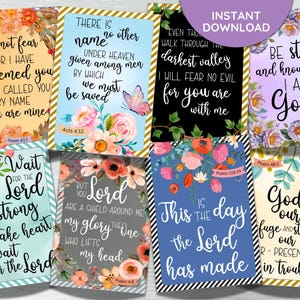 INSTANT
DOWNLOAD
not fear
I have
emed you
CALLED YOU
BY NAME
are mine
THERE IS
no other
name
UNDER HEAVEN
given among men
BY WHICH
we must
be saved
Acts 4:12
EVEN
WALK THROUGH
darkest valley
I WILL FEAR NO EVIL
for you are
with me
BE
and know
AM
Wait
FOR THE
Lord
strong
take heart
wait
for the Lord
BUT
YOU
Lord
ARE A SHIELD AROUND ME
my glory
THE
One
WHO LIFTS
my head
Psalm 118:24
This IS THE day
the Lord
has made
God
our
fuge AND
our
R-PRESEN
in trou